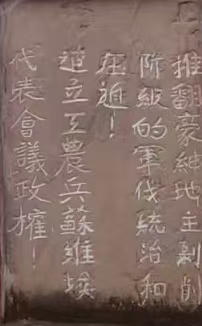 推翻豪紳地主剥削
阶級的軍伐統治和
压迫！
建立工農兵蘇維埃
代表會議政權！